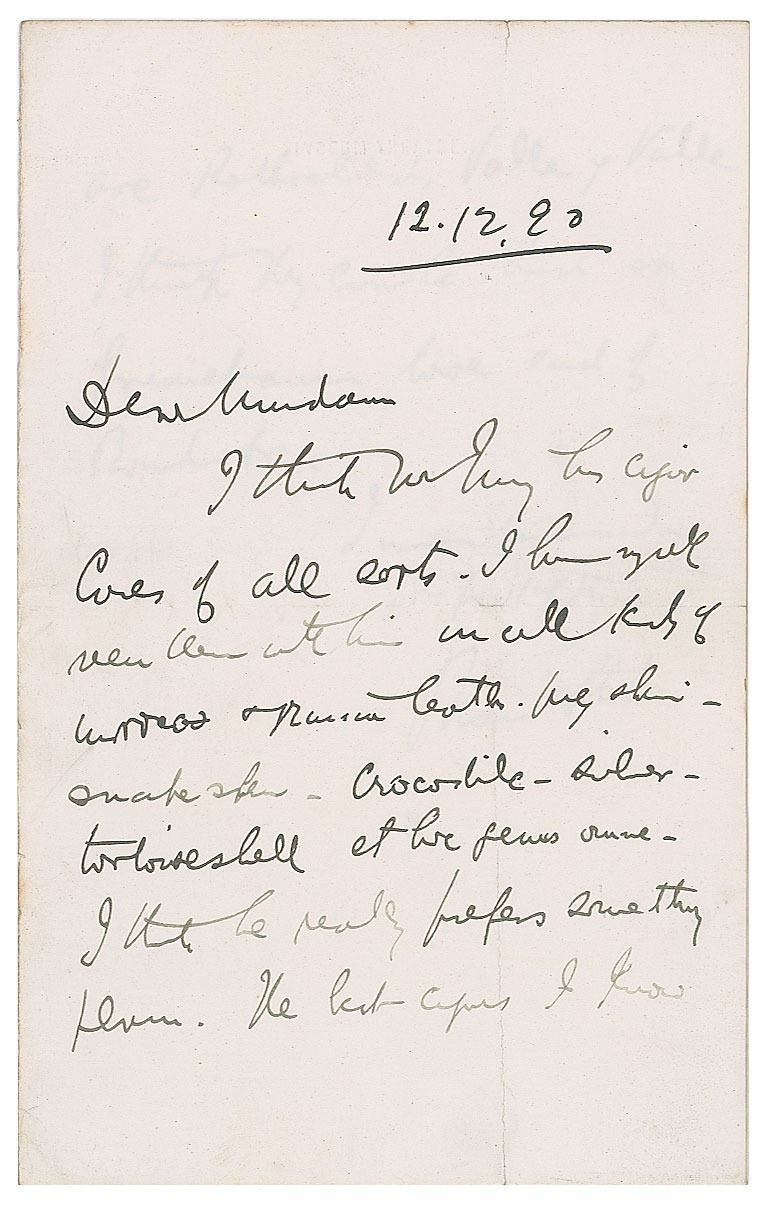 12.12.90
Dear Madam
I think Mr Irving has cigar
Cases of all sorts. I have myself
seen them with him in all kinds of
morocco & Russian leather. pig skin -
snake skin - Crocodile - silver -
tortoiseshell et hoc genus omne -
I think he really prefers something
plain. The best cigars I know